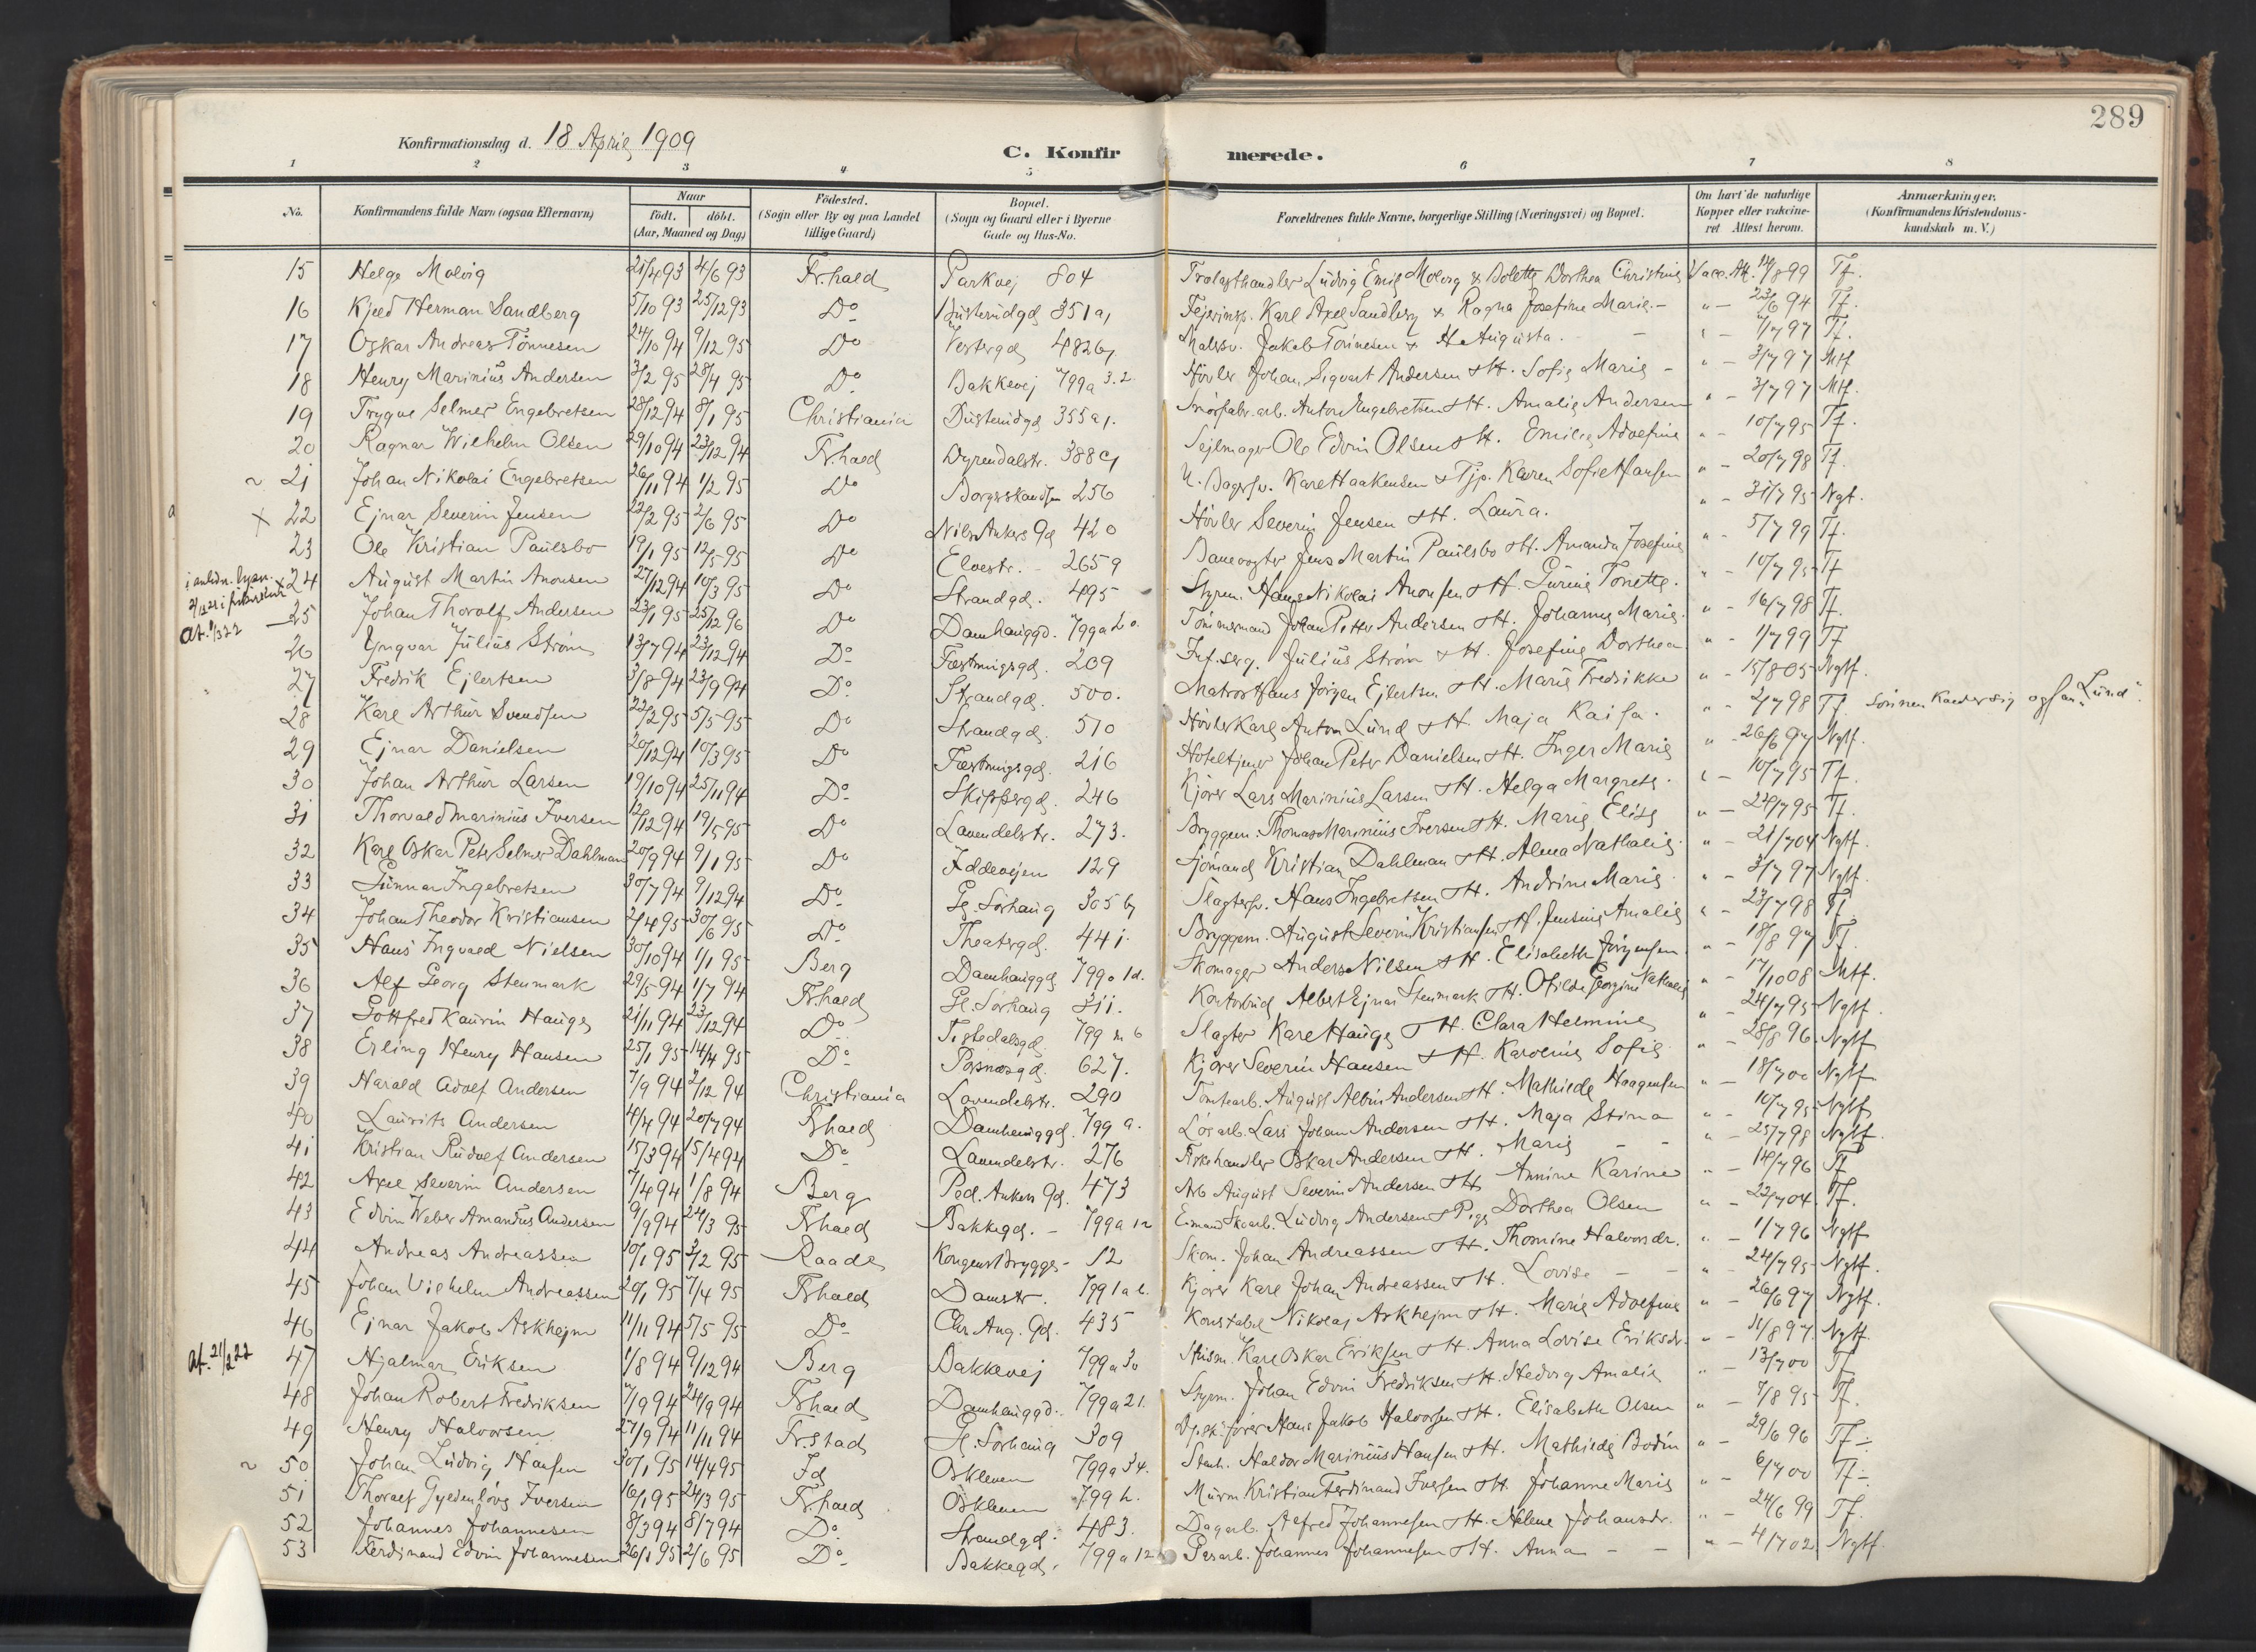 289
Konfirmationsdag d. 18 April 1909
C. Konfirmerede.
1 2 3 4 5 6 7 8
No. Konfirmandens fulde Navn (ogsaa Efternavn) Naar født. døbt. (Aar, Maaned og Dag) Fødested. (Sogn eller By og paa Landet tillige Gaard) Bopæl. (Sogn og Gaard eller i Byerne Gade og Hus-No. Forældrenes fulde Navne, borgerlige Stilling (Næringsvei) og Bopæl. Om havt de naturlige Kopper eller vakcineret Attest herom. Anmærkninger. (Konfirmandens Kristendomskundskab m. V.)
15 Helge Molvig 21/4 93 4/6 93 Fr.hald Parkvej 804 Ludvig Emil Molvig & Bolette Dorthea Christine Vacc. Att. 14/8 99 Tf.
16 Kjeld Herman Sandberg 5/10 93 25/12 93 Do 351 a, Karl Axel Sandberg & Ragna Josefine Marie - " - 23/6 94 Tf.
17 Oskar Andreas Tønnesen 24/10 94 9/12 95 Do Vestergd 482 b, Malersv. Jakob Tønnesen & H. Augusta. " 7/7 97 Tf.
18 Henry Marinius Andersen 3/2 95 28/4 95 Do Bakkevej 799 a 3.2. Høvler Johan Sigvart Andersen & H. Sofie Marie - " - 3/7 97 Mtf
19 Trygve Selmer Engebretsen 28/12 94 8/1 95 Christiania 355 a 1. Anton Engebretsen & H. Amalie Andersen " - 3/7 97 Mtf.
20 Ragnar Wilhelm Olsen 29/10 94 23/12 94 Fr.hald Dyrendalstr. 388 c, Sejlmager Ole Edvin Olsen & H. Emilie Adolfine " - 10/7 95 Tf.
~ 21 Johan Nikolai Engebretsen 26/11 94 1/2 95 Do 256 Karen Sofie Hansen " - 20/7 98 Tf.
x 22 Ejnar Severin Jensen 22/2 95 2/6 95 Do Nils Ankers Gd 420 Høvler Severin Jensen & H. Laura. " - 31/7 95 Ngt.
23 Ole Kristian Paulsbo 19/1 95 12/5 95 Do Elvestr. - 265 a Banevogter Jens Martin Paulsbo & H. Amanda Josefine " - 5/7 99 Tf.
x 24 August Martin Anonsen 27/12 94 10/3 95 Do Strandgd. 495 Styrm. Hans Nikolai Anonsen & H. Gurine Tonette. " - 10/7 95 Tf
25 Johan Thorolf Andersen 23/1 95 25/12 96 Do Damhauggd. 799 a 20. Tømmermand Johan Petter Andersen & H. Johanne Marie. " - 16/7 98 Tf.
At. 1/3 22
26 Yngvar Julius Strøm 13/7 94 23/12 94 Do Fæstningsgd. 209 Inf. serg. Julius Strøm & H. Josefine Dorthea " - 1/7 99 Tf
27 Fredrik Ejlertsen 3/8 94 23/9 94 Do Strandgd. 500. Matros Hans Jørgen Ejlertsen & H. Marie Fredrikke " - 15/8 05 Ngtf.
28 Karl Arthur Svendsen 22/2 95 5/5 95 Do Strandgd. 510 Høvler Karl Anton Lund & H. Maja Kaisa. " - 2/7 98 Tf Sønnen kalder sig ogsaa "Lund".
29 Ejnar Danielsen 20/12 94 10/3 95 Do Fæstningsgd. 216 Hoteltjener Johan Peter Danielsen & H. Inger Marie " - 26/6 97 Ngtf.
30 Johan Arthur Larsen 19/10 94 25/11 94 Do Skippergd. 246 Kjører Lars Marinius Larsen & H. Helga Margrete. " - 10/7 95 Tf.
31 Thorvald Marinius Iversen 12/12 94 19/5 95 Do Lavendelstr. 273. Bryggem. Thomas Marinius Iversen & H. Marie Elise " - 24/7 95 Tf.
32 Karl Oskar Peter Selmer Dahlman 20/9 94 9/1 95 Do Iddeveien 129 Sjømand Kristian Dahlman & H. Alma Nathalie. " - 21/7 04 Ngtf.
33 Gunnar Ingebretsen 30/7 94 9/12 94 Do Gl. Sørhaug 305 b, Slagtersv. Hans Ingebretsen & H. Andrine Marie " - 3/7 97 Ngtf.
34 Johan Theodor Kristiansen 2/4 95 30/6 95 Do Theatergd. 441. Bryggem. August Severin Kristiansen & H. Jensine Amalie " - 23/7 98 Tf.
35 Hans Ingvald Nielsen 30/10 94 1/1 95 Berg Damhauggd 799 a 1d. Skomager Anders Nilsen & H. Elisabeth Jørgensen " - 18/8 97 Tf.
36 Alf Georg Stenmark 29/5 94 1/7 94 Fr.hald Gl. Sørhaug 311. Kontorbud Albert Ejnar Stenmark & H. Otilde Georgine Nathalie " - 17/10 08 Mtf.
37 Gottfred Kaurin Hauge 21/11 94 23/12 94 Do Tistedalsgd. 799 m 6 Slagter Karl Hauge & H. Clara Helmine " - 24/7 95 Ngtf.
38 Erling Henry Hansen 25/1 95 14/4 95 Do Posnæsgd. 627. Kjører Severin Hansen & H. Karoline Sofie " - 28/8 96 Ngtf
39 Harald Adolf Andersen 7/9 94 2/12 94 Christiania Lavendelstr. 290 Tomtearb. August Albin Andersen & H. Mathilde Haagensen " - 18/7 00 Ngtf
40 Laurits Andersen 4/4 94 20/7 94 Fhald Damhauggd. 799 a. Løsarb. Lars Johan Andersen & H. Maja Stina " - 10/7 95 Ngtf
41 Kristian Rudolf Andersen 15/3 94 15/4 94 Do Lavendelstr. 276 Fiskehandler Oskar Andersen & H. Marie - - " - 25/7 98 Ngtf.
42 Axel Severin Andersen 7/4 94 1/8 94 Berg Ped. Ankers Gd. 473 Arb. August Severin Andersen & H. Annine Karine " - 14/7 96 Tf
43 Edvin Weber Amandus Andersen 9/9 94 24/3 95 Fhald Bakkegd. - 799 a 12 Ludvig Andersen & Pige Dorthea Olsen " - 22/7 04. Tf.
44 Andreas Andreassen 10/1 95 3/2 95 Raade Kongens Brygge - 12 Skom. Johan Andreassen & H. Thomine Halvorsdr. " - 1/7 96 Ngtf
45 Johan Vilhelm Andreassen 20/1 95 7/4 95 Fhald Damstr. 799 1 a b. Kjører Karl Johan Andreassen & H. Lovise - - " - 24/7 95 Ngtf.
46 Ejnar Jakob Askhejm 11/11 94 5/5 95 Do Chr. Aug. Gd. 435 Konstabel Nikolaj Askhejm & H. Marie Adolfine " - 26/6 97 Ngtf.
At. 21/2 22 47 Hjalmar Eriksen 1/8 94 9/12 94 Berg Bakkevej 799 a 30 Karl Oskar Eriksen & H. Anna Lovise Eriksdr. " - 11/8 97. Ngtf.
48 Johan Robert Fredriksen 7/9 94 24/9 94 Fhald Damhauggd. 799 a 21. Styrm. Johan Edvin Fredriksen & H. Hedvig Amalie " - 13/7 00 Tf
49 Henry Halvorsen 27/9 94 11/11 94 Fr.stad Gl. Sørhaug 309 Hans Jakob Halvorsen & H. Elisabeth Olsen " - 7/8 95 Tf.
~ 50 Johan Ludvig Hansen 30/1 95 14/4 95 Id Oskleven 799 a 34. Stenh. Haldor Marinius Hansen & H. Mathilde Bodin " - 29/6 96 Tf -
51 Thoralf Gyldenløve Iversen 16/1 95 24/3 95 Fhald Oskleven 799 h. Murm Kristian Ferdinand Iversen & H. Johanne Marie " - 6/7 00 Tf -
52 Johannes Johannesen 8/3 94 8/7 94 Do Strandgd. 483. Dagarb. Alfred Johannesen & H. Helene Johansdr. " - 24/6 99 Tf.
53 Ferdinand Edvin Johannesen 26/1 95 2/6 95 Do Bakkegd. 799 a 12 Johannes Johannesen & H. Anna - - " - 4/7 02 Ngtf.